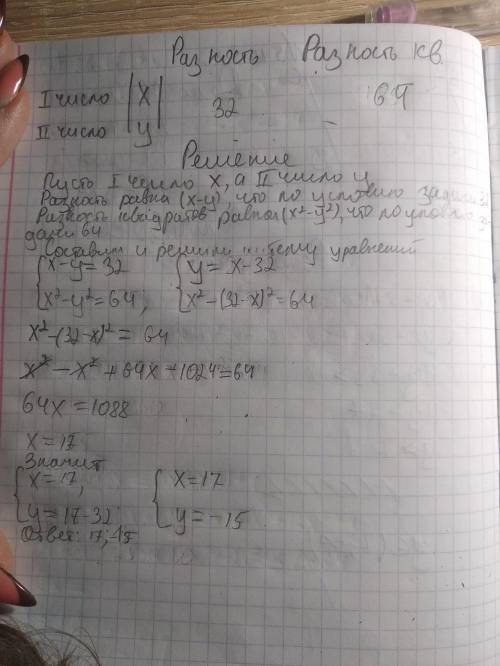 Разность Разность кв.
I число | X | 32 64
II число | y |
Решение
Пусть I число X, а II число y
Разность равна (x-y), что по условию задачи 32
Разность квадратов равна (x²-y²), что по условию за-
дачи 64
Составим и решим систему уравнений
{x-y=32 {y=x-32
{x²-y²=64; {x²-(32-x)²=64
x²-(32-x)²=64
x²-x²+64x-1024=64
64x=1088
x=17
Значит
{x=17, {x=17
{y=17-32 {y=-15
Ответ: 17;-15